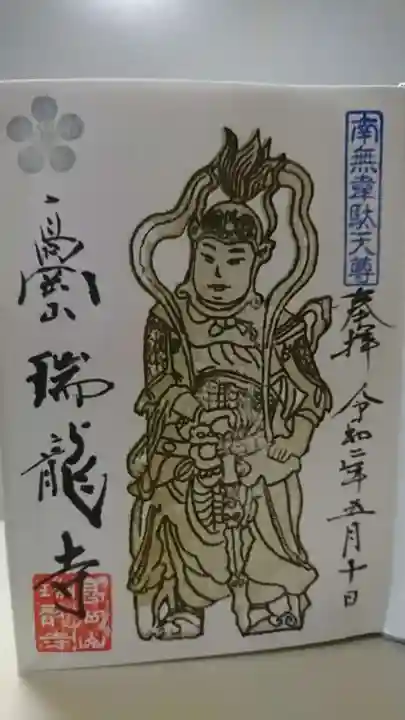 南無韋駄天尊
奉拝 令和二年五月十日
高岡山 瑞龍寺
高岡山
瑞龍寺